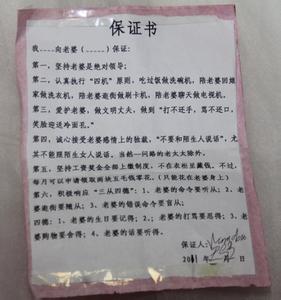 保证书
我____向老婆（_____）保证：
第一，坚持老婆是绝对领导；
第二，认真执行“四机”原则，吃过饭做洗碗机，陪老婆回娘
家做洗衣机，陪老婆逛街做刷卡机，陪老婆聊天做电视机。
第三，爱护老婆，做文明丈夫，做到“打不还手，骂不还口，
笑脸迎送冷面孔。”
第四，诚心接受老婆感情上的独裁，“不要和陌生人说话”，尤
其不能跟陌生女人说话，当然一问路的老太太除外。
第五，坚持工资奖金全部上缴制度，不在衣柜里藏钱，不过，
每月可以申请领取两块五毛钱零花。（只能花在老婆身上）
第六，积极响应“三从四德”：1、老婆的命令要听从；2、老
婆逛街要随从；3、老婆的错误命令要盲从；
四德：1、老婆的生日要记得；2、；老婆的打骂要忍得；3、老
婆购物要舍得；4、老婆的话要听得。
保证人：